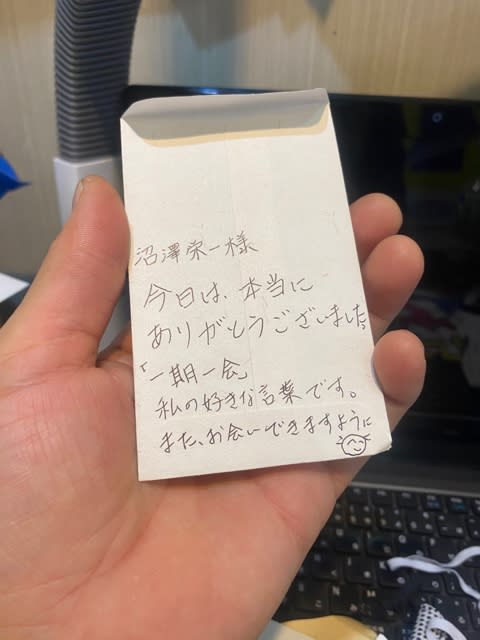 沼澤栄一様
今日は、本当に
ありがとうございました
「一期一会」
私の好きな言葉です。
また、お会いできますように